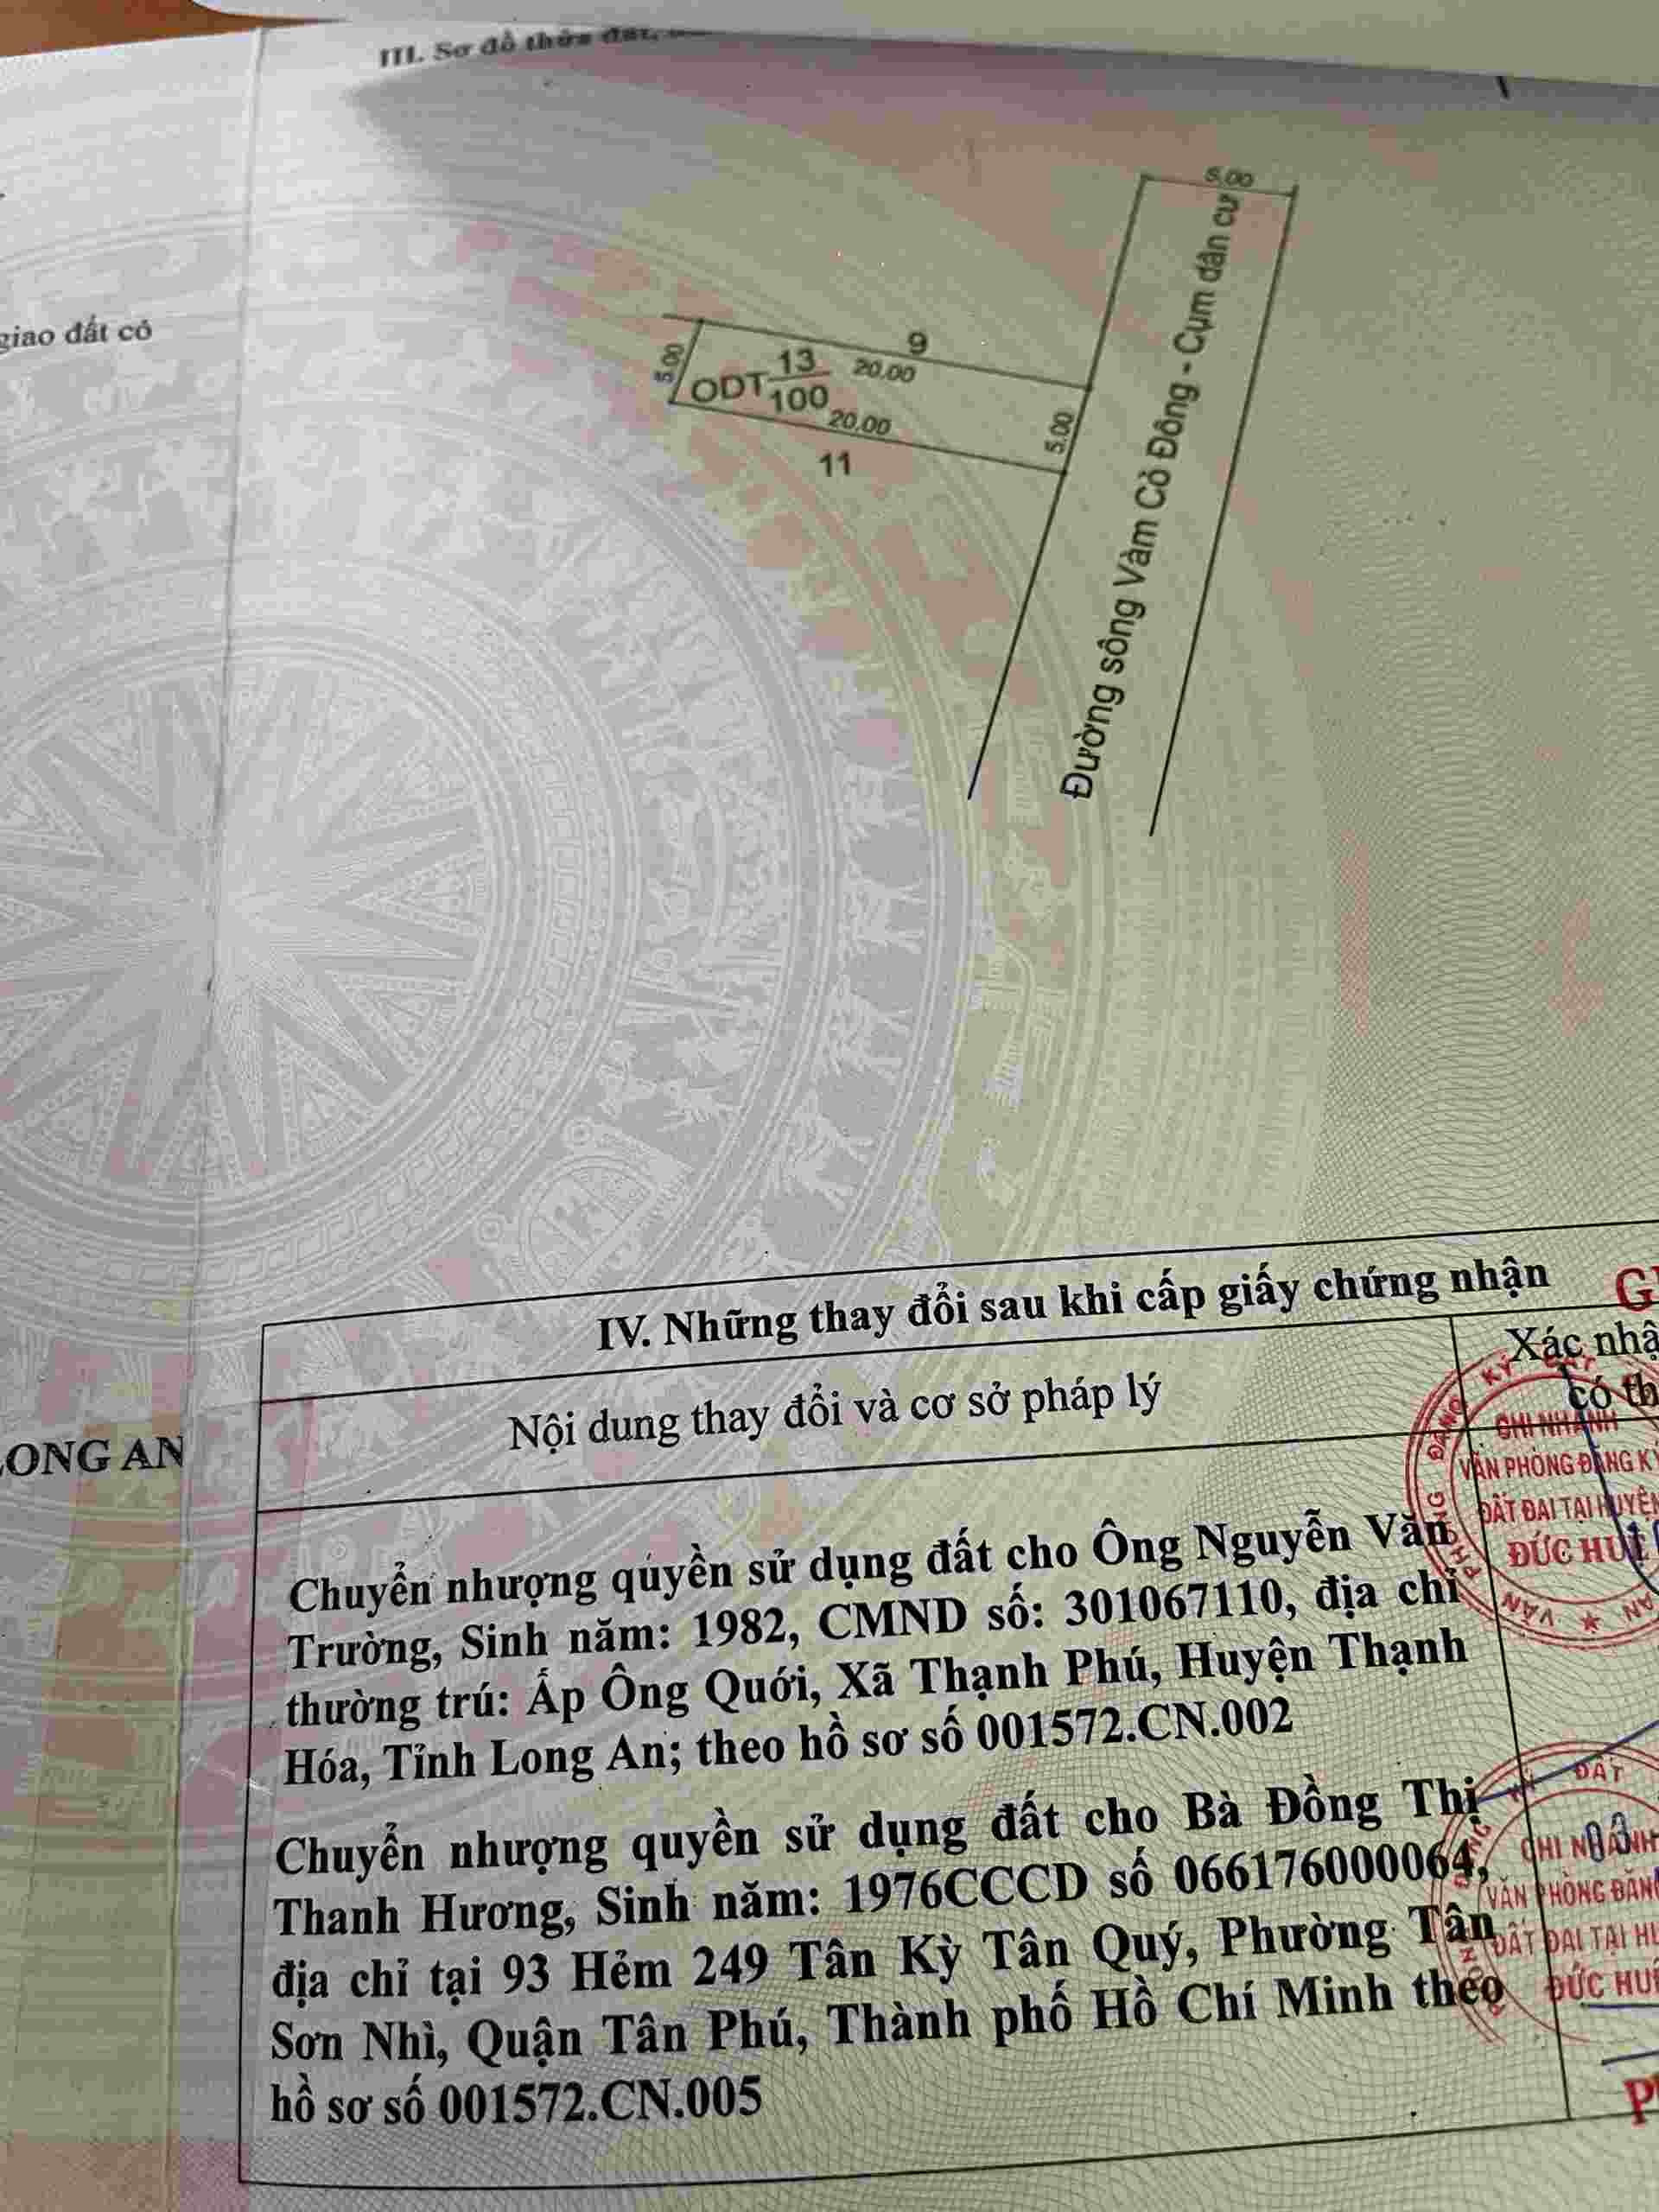 III. Sơ đồ thửa đất,
giao đất có
5.00
9
5.00
ODT 13
100
20.00
20.00
5.00
11
Đường sông Vàm Cỏ Đông - Cụm dân cư
IV. Những thay đổi sau khi cấp giấy chứng nhận
Nội dung thay đổi và cơ sở pháp lý
Xác nhậ
có th
LONG AN
CHI NHÁNH
VĂN PHÒNG ĐĂNG K
ĐẤT ĐAI TẠI HUYỆN
ĐỨC HUỆ
Chuyển nhượng quyền sử dụng đất cho Ông Nguyễn Văn
Trường, Sinh năm: 1982, CMND số: 301067110, địa chỉ
thường trú: Ấp Ông Quới, Xã Thạnh Phú, Huyện Thạnh
Hóa, Tỉnh Long An; theo hồ sơ số 001572.CN.002
Chuyển nhượng quyền sử dụng đất cho Bà Đồng Thị
Thanh Hương, Sinh năm: 1976CCCD số 066176000064,
địa chỉ tại 93 Hẻm 249 Tân Kỳ Tân Quý, Phường Tân
Sơn Nhì, Quận Tân Phú, Thành phố Hồ Chí Minh theo
hồ sơ số 001572.CN.005
ĐẤT
CHI NHÁNH
VĂN PHÒNG ĐĂN
ĐẤT ĐAI TẠI HU
ĐỨC HUỆ